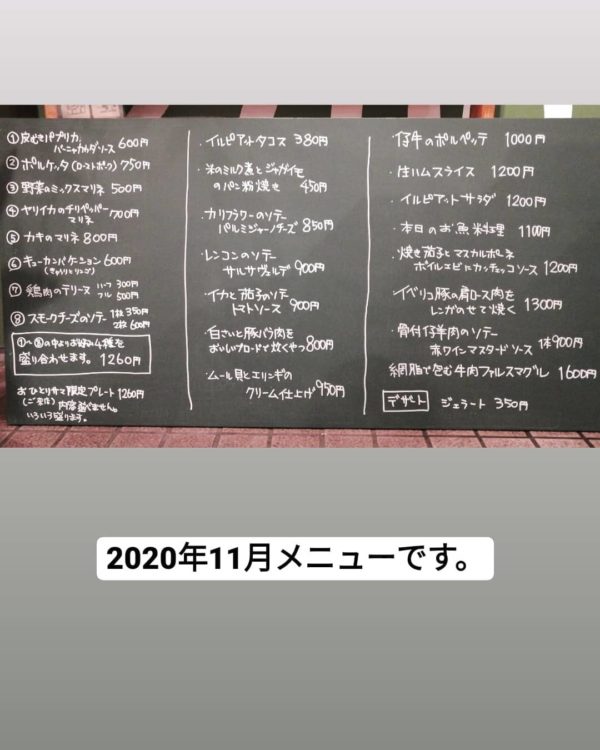 ①皮むきパプリカ
バーニャカウダソース 600円
②ポルケッタ(ローストポーク) 750円
③野菜のミックスマリネ 500円
④ヤリイカのチリペッパー
マリネ 700円
⑤カキのマリネ 800円
⑥キューカンバケション 600円
(きゅうりとリンゴ)
⑦鶏肉のテリーヌ ハーフ 300円
フル 500円
⑧スモークチーズのソテー 1枚 350円
2枚 600円
①〜⑧の中よりお好み4種を
盛り合わせます。 1260円
おひとり様限定プレート 1260円
(ご来店) 内容選べません。
いろいろ盛ります。
・イルピアットタコス 380円
・米のミルク煮とジャガイモ
のパン粉焼き 450円
・カリフラワーのソテー
パルミジャーノチーズ 850円
・レンコンのソテー
サルサヴェルデ 900円
・イカと茄子のソテー
トマトソース 900円
・白さいと豚バラ肉を
おいしいブロードで炊くやつ 800円
・ムール貝とエリンギの
クリーム仕上げ 950円
・仔牛のポルペッテ 1000円
・生ハムスライス 1200円
・イルピアットサラダ 1200円
・本日のお魚料理 1100円
・焼き茄子とマスカルポーネ
ボイルエビにカッチュッコソース 1200円
・イベリコ豚の肩ロース肉を
レンガのせて焼く 1300円
・骨付仔羊肉のソテー
赤ワインマスタードソース 1本900円
網脂で包む牛肉ファルスマグル 1600円
デザート ジェラート 350円
2020年11月メニューです。